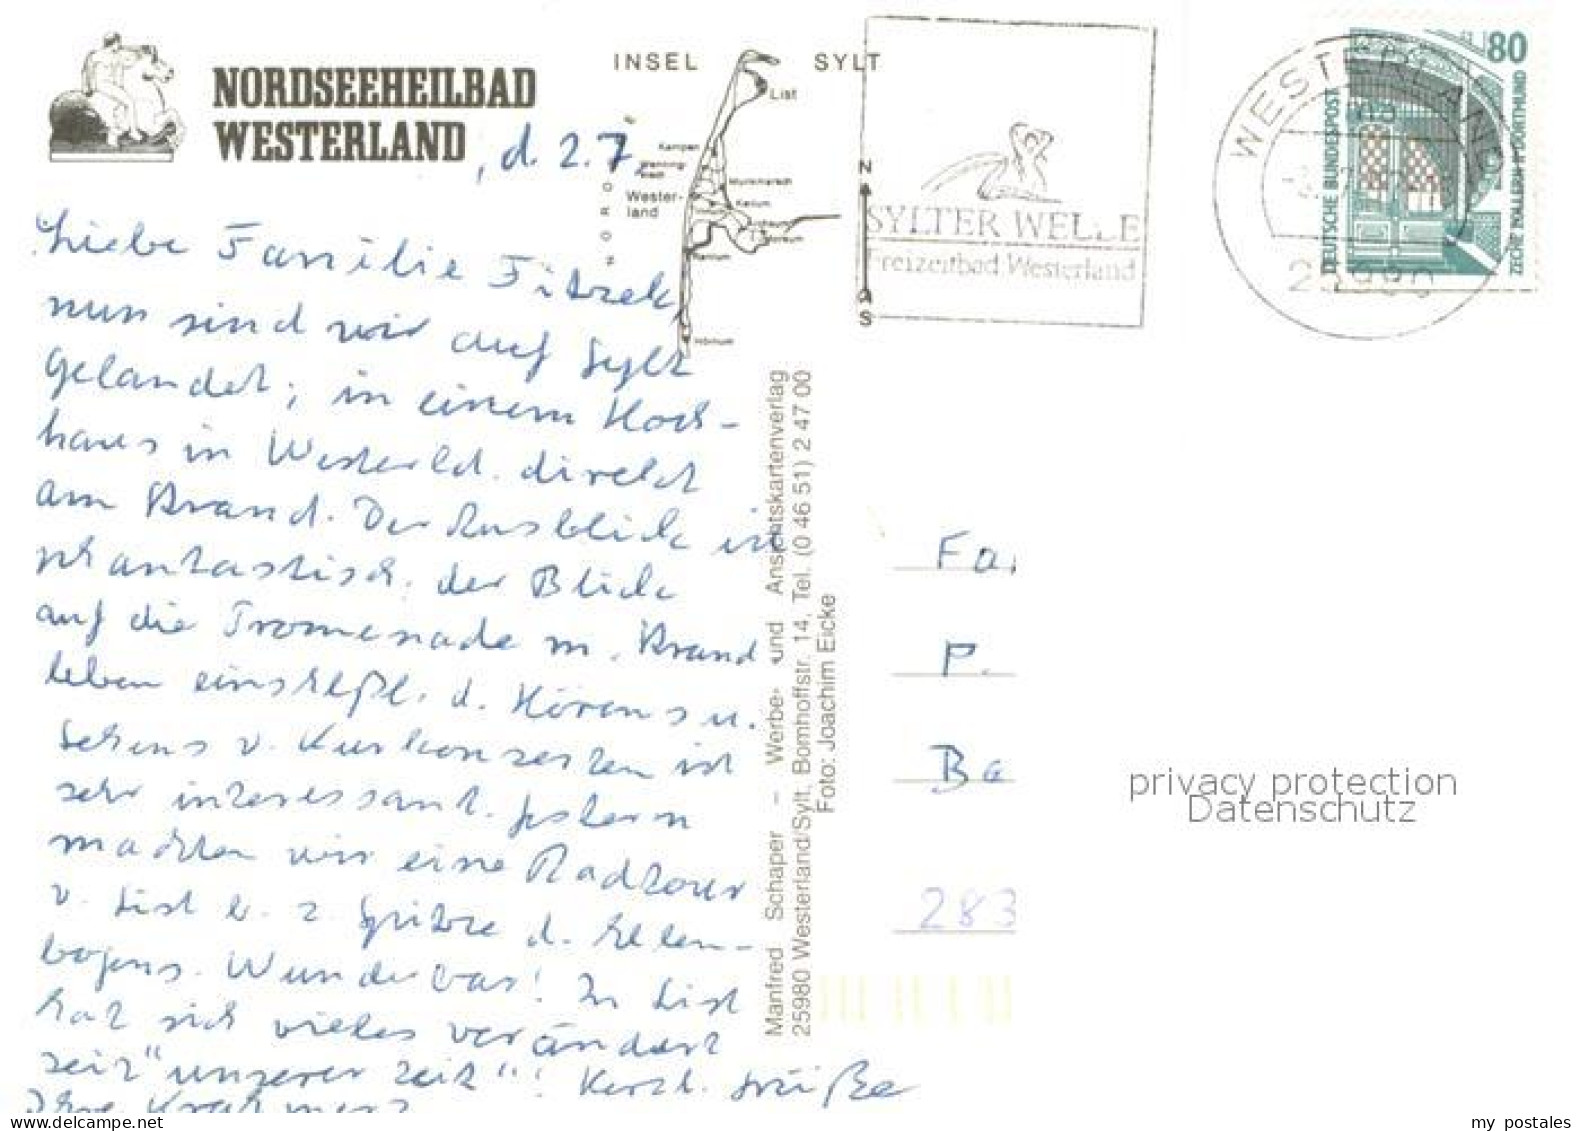 NORDSEEHEILBAD
WESTERLAND
, d. 2.7.
INSEL SYLT
List
Kampen
Wenning-
stedt
Wester-
land
Munkmarsch
Keitum
Morsum
Rantum
Hörnum
NORD
N
S
SYLTER WELLE
Freizeitbad Westerland
WESTERLAND
25980
80
DEUTSCHE BUNDESPOST
ZECHE ZOLLERN II DORTMUND
Liebe Familie Fitzek
nun sind wir auf Sylt
gelandet; in einem Hoch-
haus in Westerld. direkt
am Strand. Der Ausblick ist
phantastisch, der Blick
auf die Promenade m. Strand
leben einschlßl. d. Hörens u.
Sehens v. Kurkonzerten ist
sehr interessant. gestern
machten wir eine Radtour
v. List b. z. Spitze d. Ellen-
bogens. Wunderbar! In List
hat sich vieles verändert
seit "unserer Zeit"! Herzl. Grüße
Ihre
Manfred Schaper – Werbe- und Ansichtskartenverlag
25980 Westerland/Sylt, Bomhoffstr. 14, Tel. (0 46 51) 2 47 00
Foto: Joachim Eicke
Fa
P.
Ba
283
privacy protection
Datenschutz
my postales